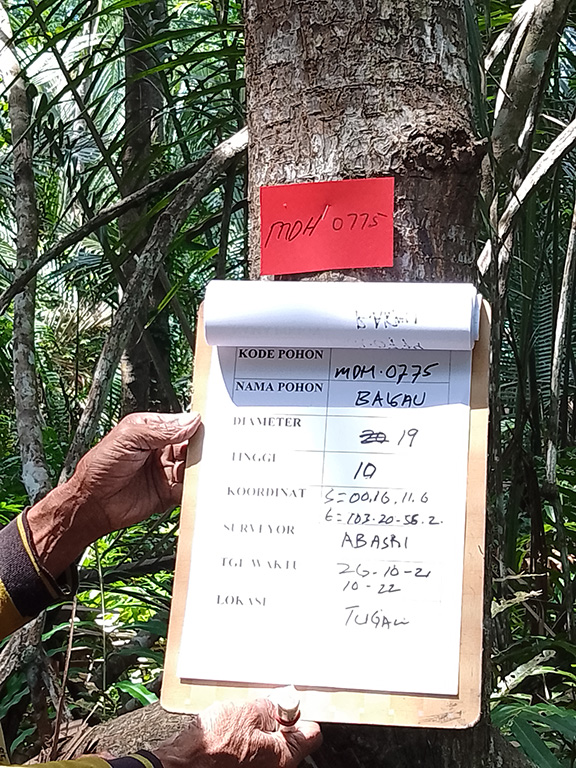 MDH 0775
KODE POHON MDH.0775
NAMA POHON BAGAU
DIAMETER 19
TINGGI 10
KOORDINAT S=00.16.11.6
E=103-20-56.2.
SURVEYOR ABASRI
TGL WAKTU 26-10-21
10-22
LOKASI